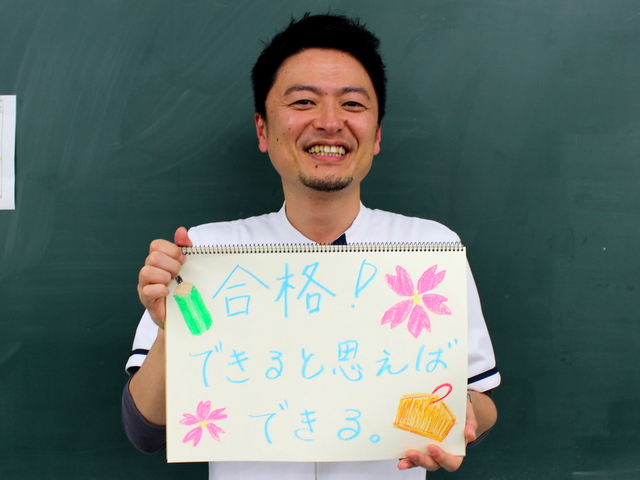 合格!
できると思えば
できる。